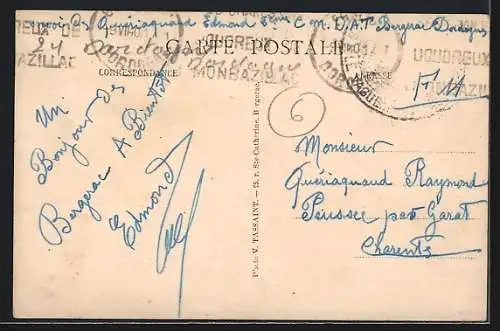 envoi de Quériaquand Edmond 5e C M. D. A. T Bergerac Dordogne
CARTE POSTALE
CORRESPONDANCE
ADRESSE
24
Dordogne
LIQUOREUX
MONBAZILLAC
F. M
6
Un
Bonjour de
Bergerac A Bientôt
Edmond
Monsieur
Quériaquand Raymond
Péussec par Garat
Charente
Photo V. TASSAINT. — 13, r. Ste-Catherine, Bergerac